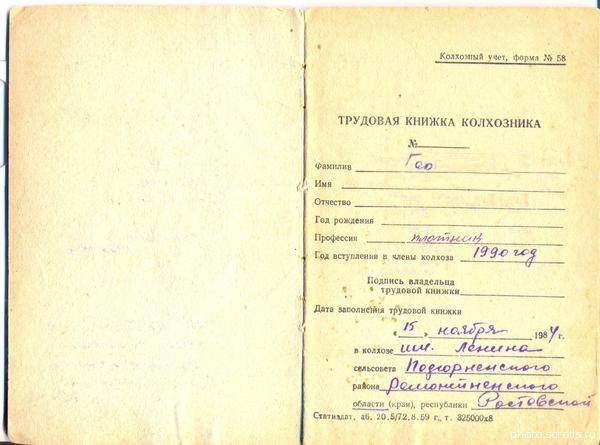 Колхозный учет, форма № 58
ТРУДОВАЯ КНИЖКА КОЛХОЗНИКА
№
Фамилия Гео
Имя
Отчество
Год рождения
Профессия плотник
Год вступления в члены колхоза 1990 год
Подпись владельца
трудовой книжки
Дата заполнения трудовой книжки
« 15 » ноября 1984 г.
в колхозе им. Ленина
сельсовета Подгорненского
района Ремонтненского
области (края), республики Ростовской
Статиздат, аб. 20.5/72.8.59 г., т. 325000х8
photo.scrolls.ru